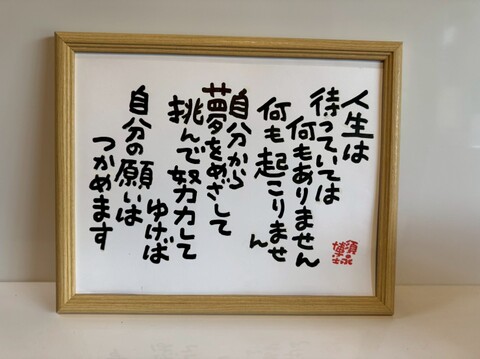 人生は
待っていては
何もありません
何も起こりません
自分から
夢をめざして
挑んで努力して
ゆけば
自分の願いは
つかめます